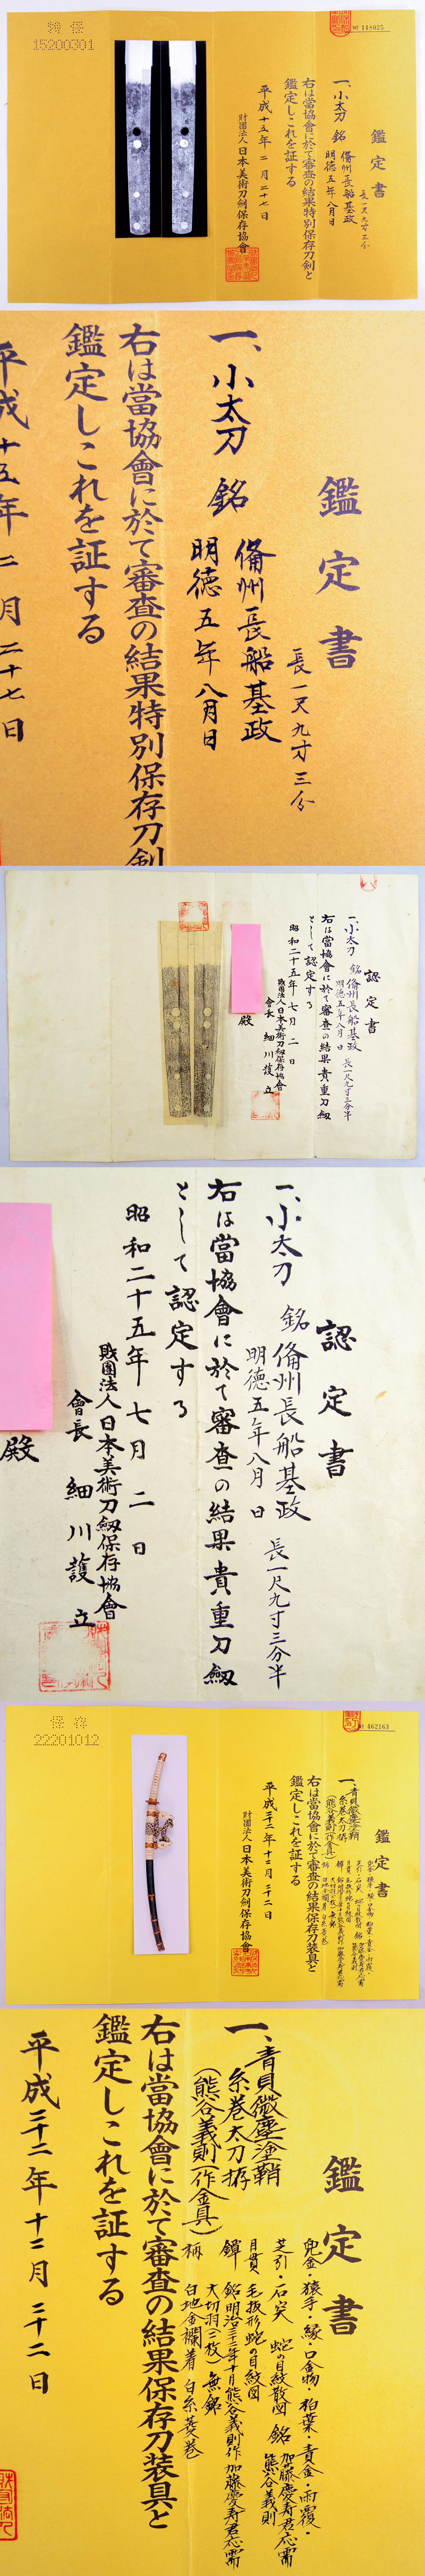 特保
15200301
№ 148025
鑑定書
長一尺九寸三分
一、小太刀 銘 備州長船基政
明徳五年八月日
右は當協會に於て審査の結果特別保存刀剣と
鑑定しこれを証する
平成十五年二月二十七日
財團法人日本美術刀剣保存協會
鑑定書
長一尺九寸三分
一、小太刀 銘 備州長船基政
明徳五年八月日
右は當協會に於て審査の結果特別保存刀剣
鑑定しこれを証する
平成十五年二月二十七日
認定書
一、小太刀 銘 備州長船基政 長一尺九寸三分半
明徳五年八月日
右は當協會に於て審査の結果貴重刀劔
として認定する
昭和二十五年七月二日
財團法人日本美術刀劔保存協會
會長 細川護立
殿
認定書
一、小太刀 銘 備州長船基政 長一尺九寸三分半
明徳五年八月 日
右は當協會に於て審査の結果貴重刀劔
として認定する
昭和二十五年七月二日
財團法人日本美術刀劔保存協會
會長 細川護立
殿
保存
22201012
№ 462163
鑑定書
一、青貝微塵塗鞘
糸巻太刀拵
(熊谷義則(作金具))
右は當協會に於て審査の結果保存刀装具と
鑑定しこれを証する
平成二十二年十二月二十二日
財團法人日本美術刀剣保存協會
鑑定書
兜金・猿手・縁・口金物・柏葉・責金・雨覆・
芝引・石突 蛇の目紋散図 銘 加藤慶寿君応需
熊谷義則
目貫 毛抜形蛇の目紋図
鐔 銘 明治三十三年十月熊谷義則作 加藤慶寿君応需
大切羽(二枚) 無銘
柄 白地金襴着白糸菱巻
一、青貝微塵塗鞘
糸巻太刀拵
(熊谷義則(作金具))
右は當協會に於て審査の結果保存刀装具と
鑑定しこれを証する
平成二十二年十二月二十二日